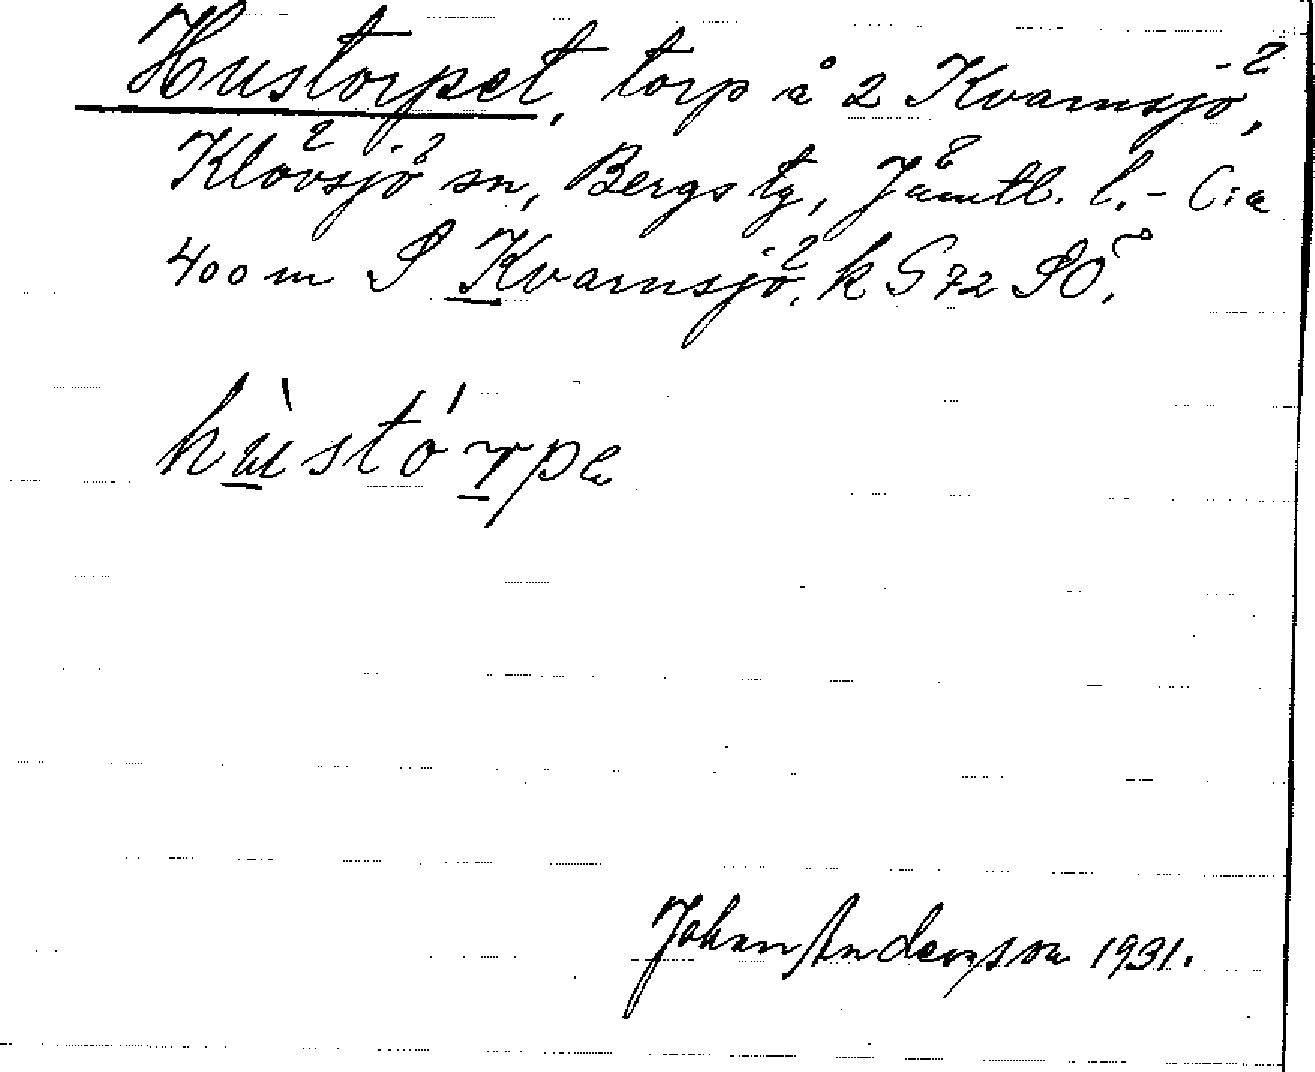 Hustorpet, torp å 2 Kvarnsjö,
Klövsjö sn, Bergs tg, Jämtl. l. - C:a
400 m S Kvarnsjö. k G 72 SÖ.
hùstórpe
Johan Anderson 1931.